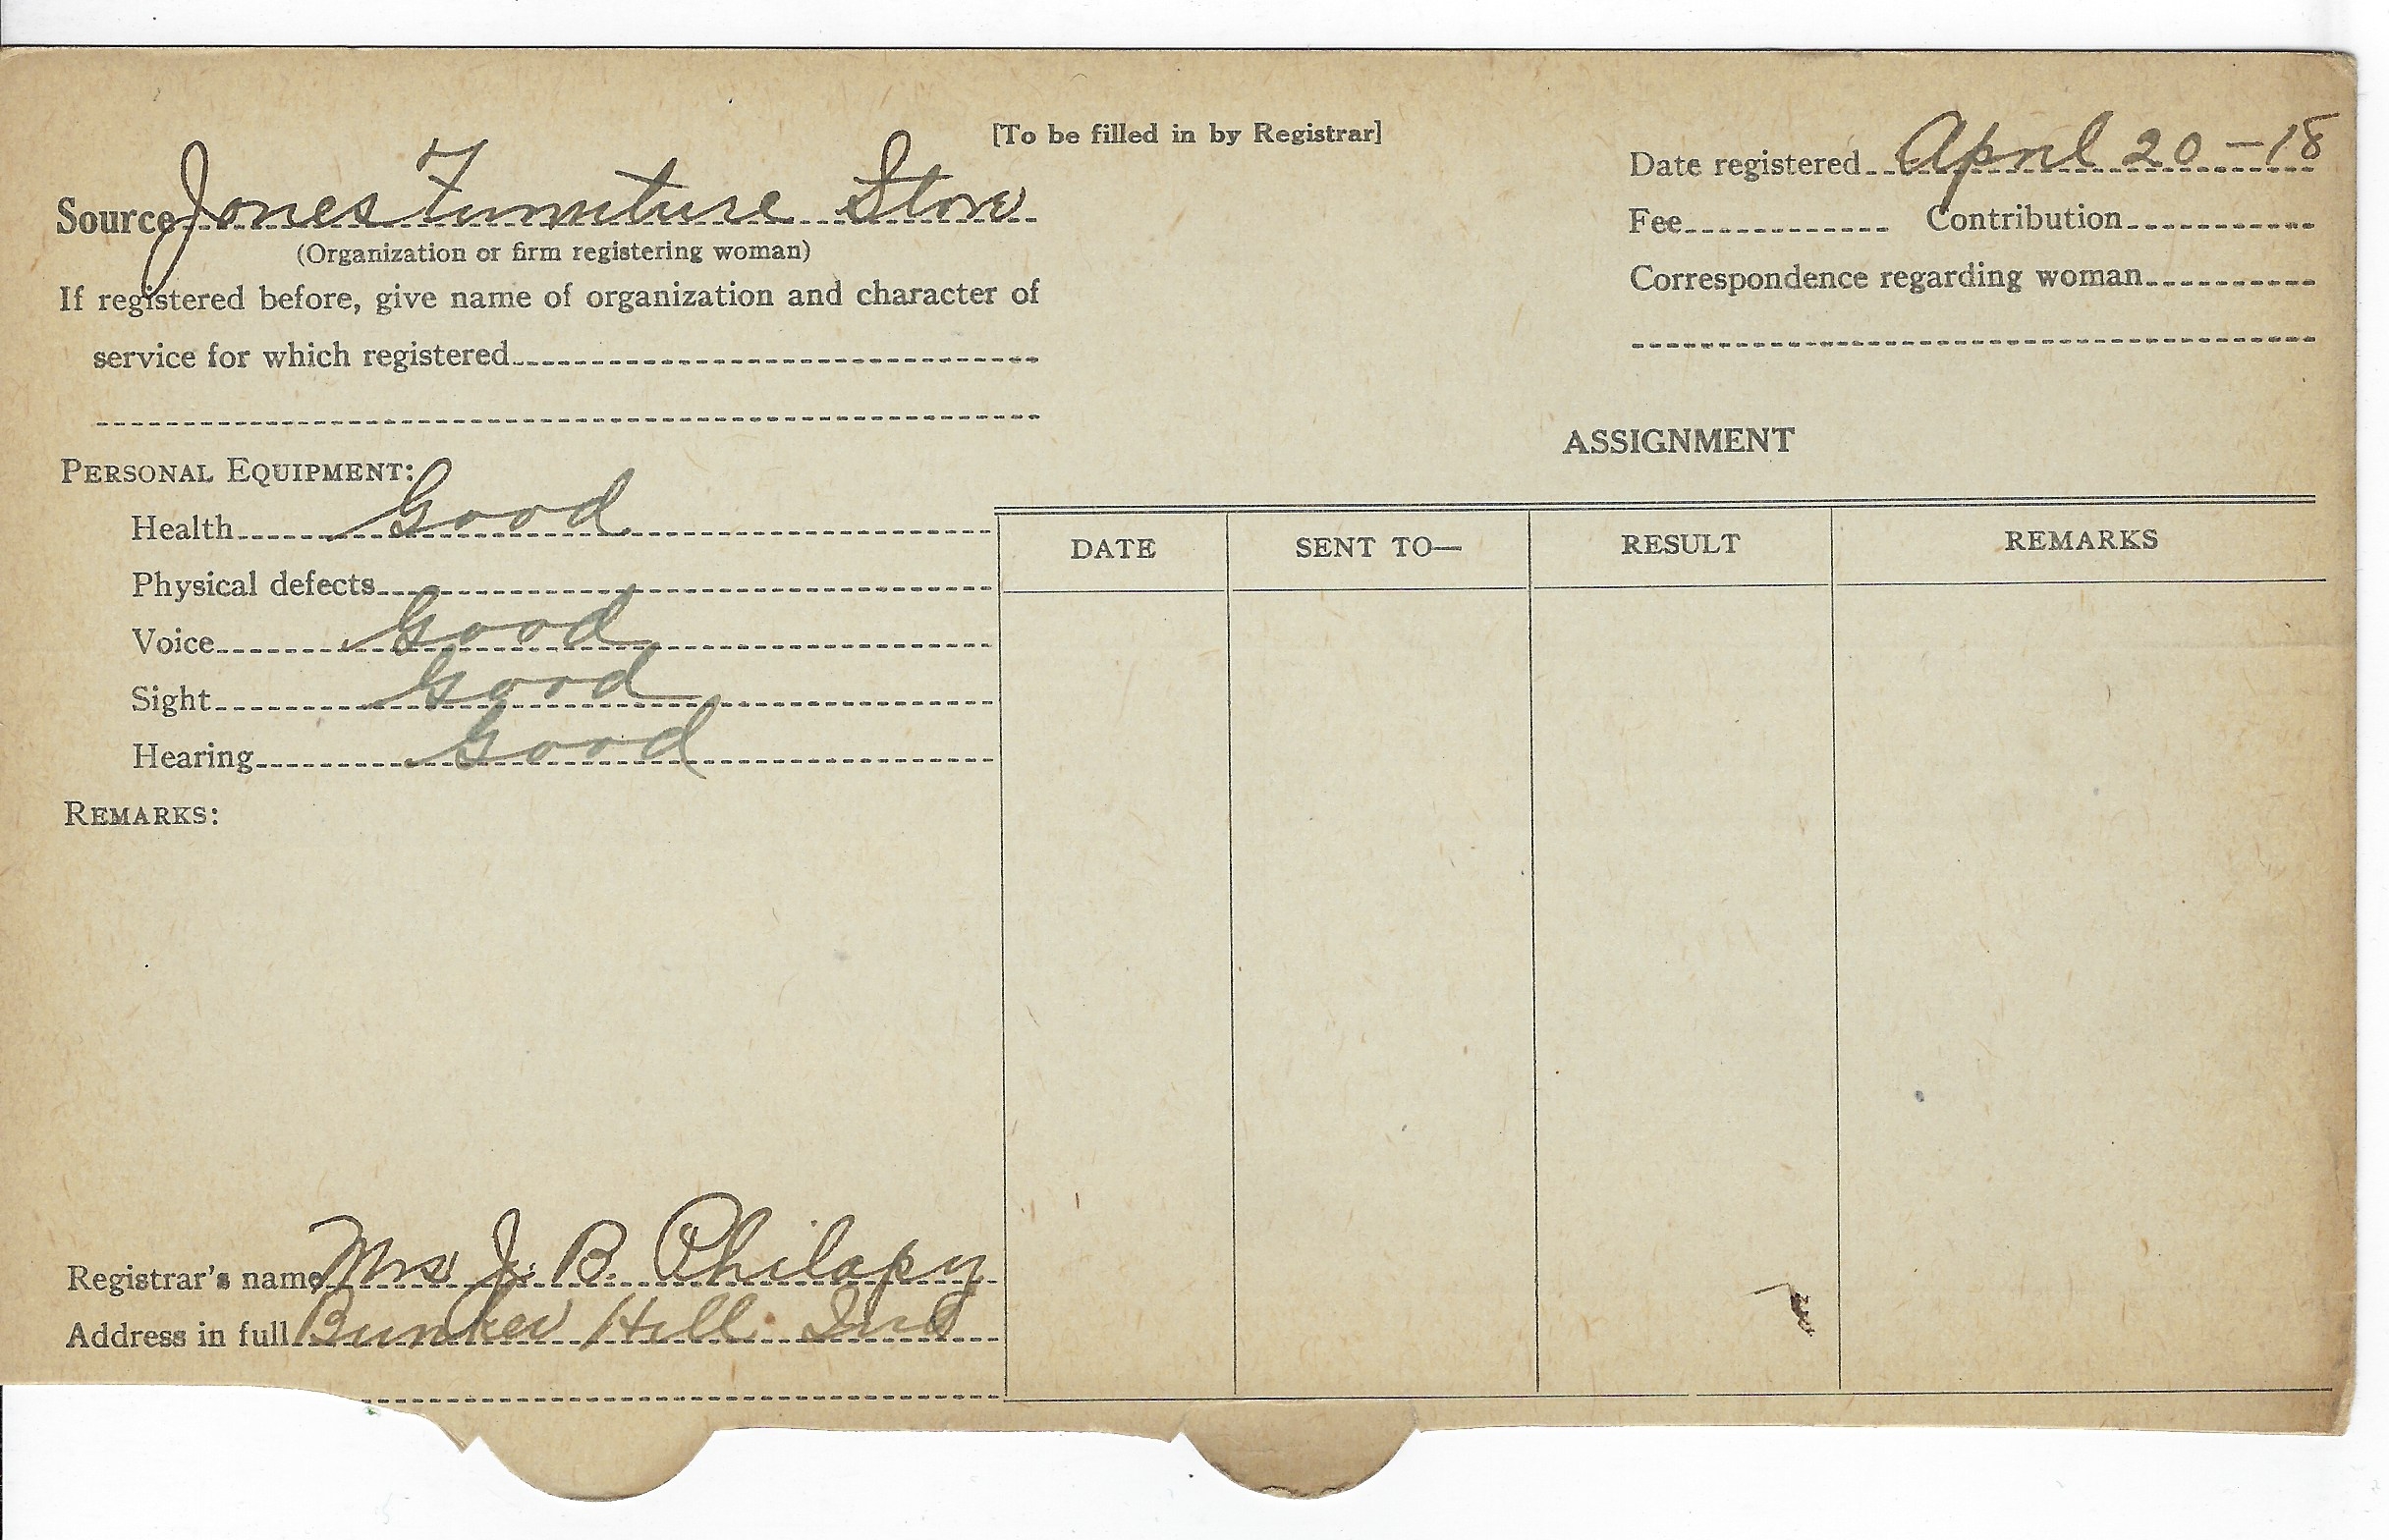 [To be filled in by Registrar]
Source Jones Furniture Store
(Organization or firm registering woman)
If registered before, give name of organization and character of
service for which registered
Date registered April 20 - 18
Fee Contribution
Correspondence regarding woman
PERSONAL EQUIPMENT:
Health Good
Physical defects
Voice Good
Sight Good
Hearing Good
REMARKS:
Registrar's name Mrs J. B. Philapy
Address in full Bunker Hill Ind
ASSIGNMENT
DATE SENT TO— RESULT REMARKS